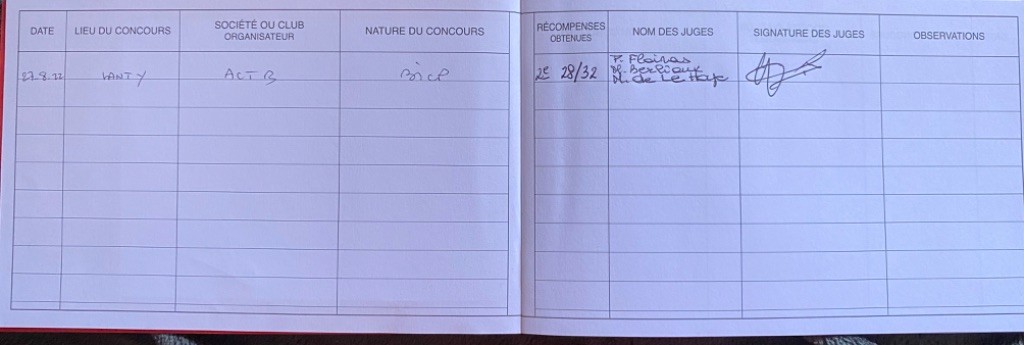 DATE
LIEU DU CONCOURS
SOCIÉTÉ OU CLUB
ORGANISATEUR
NATURE DU CONCOURS
RÉCOMPENSES
OBTENUES
NOM DES JUGES
SIGNATURE DES JUGES
OBSERVATIONS
27.8.22
LANTY
ACTB
BICP
2e 28/32
P. Flairas
M. Berliaux
M. de Le Haye